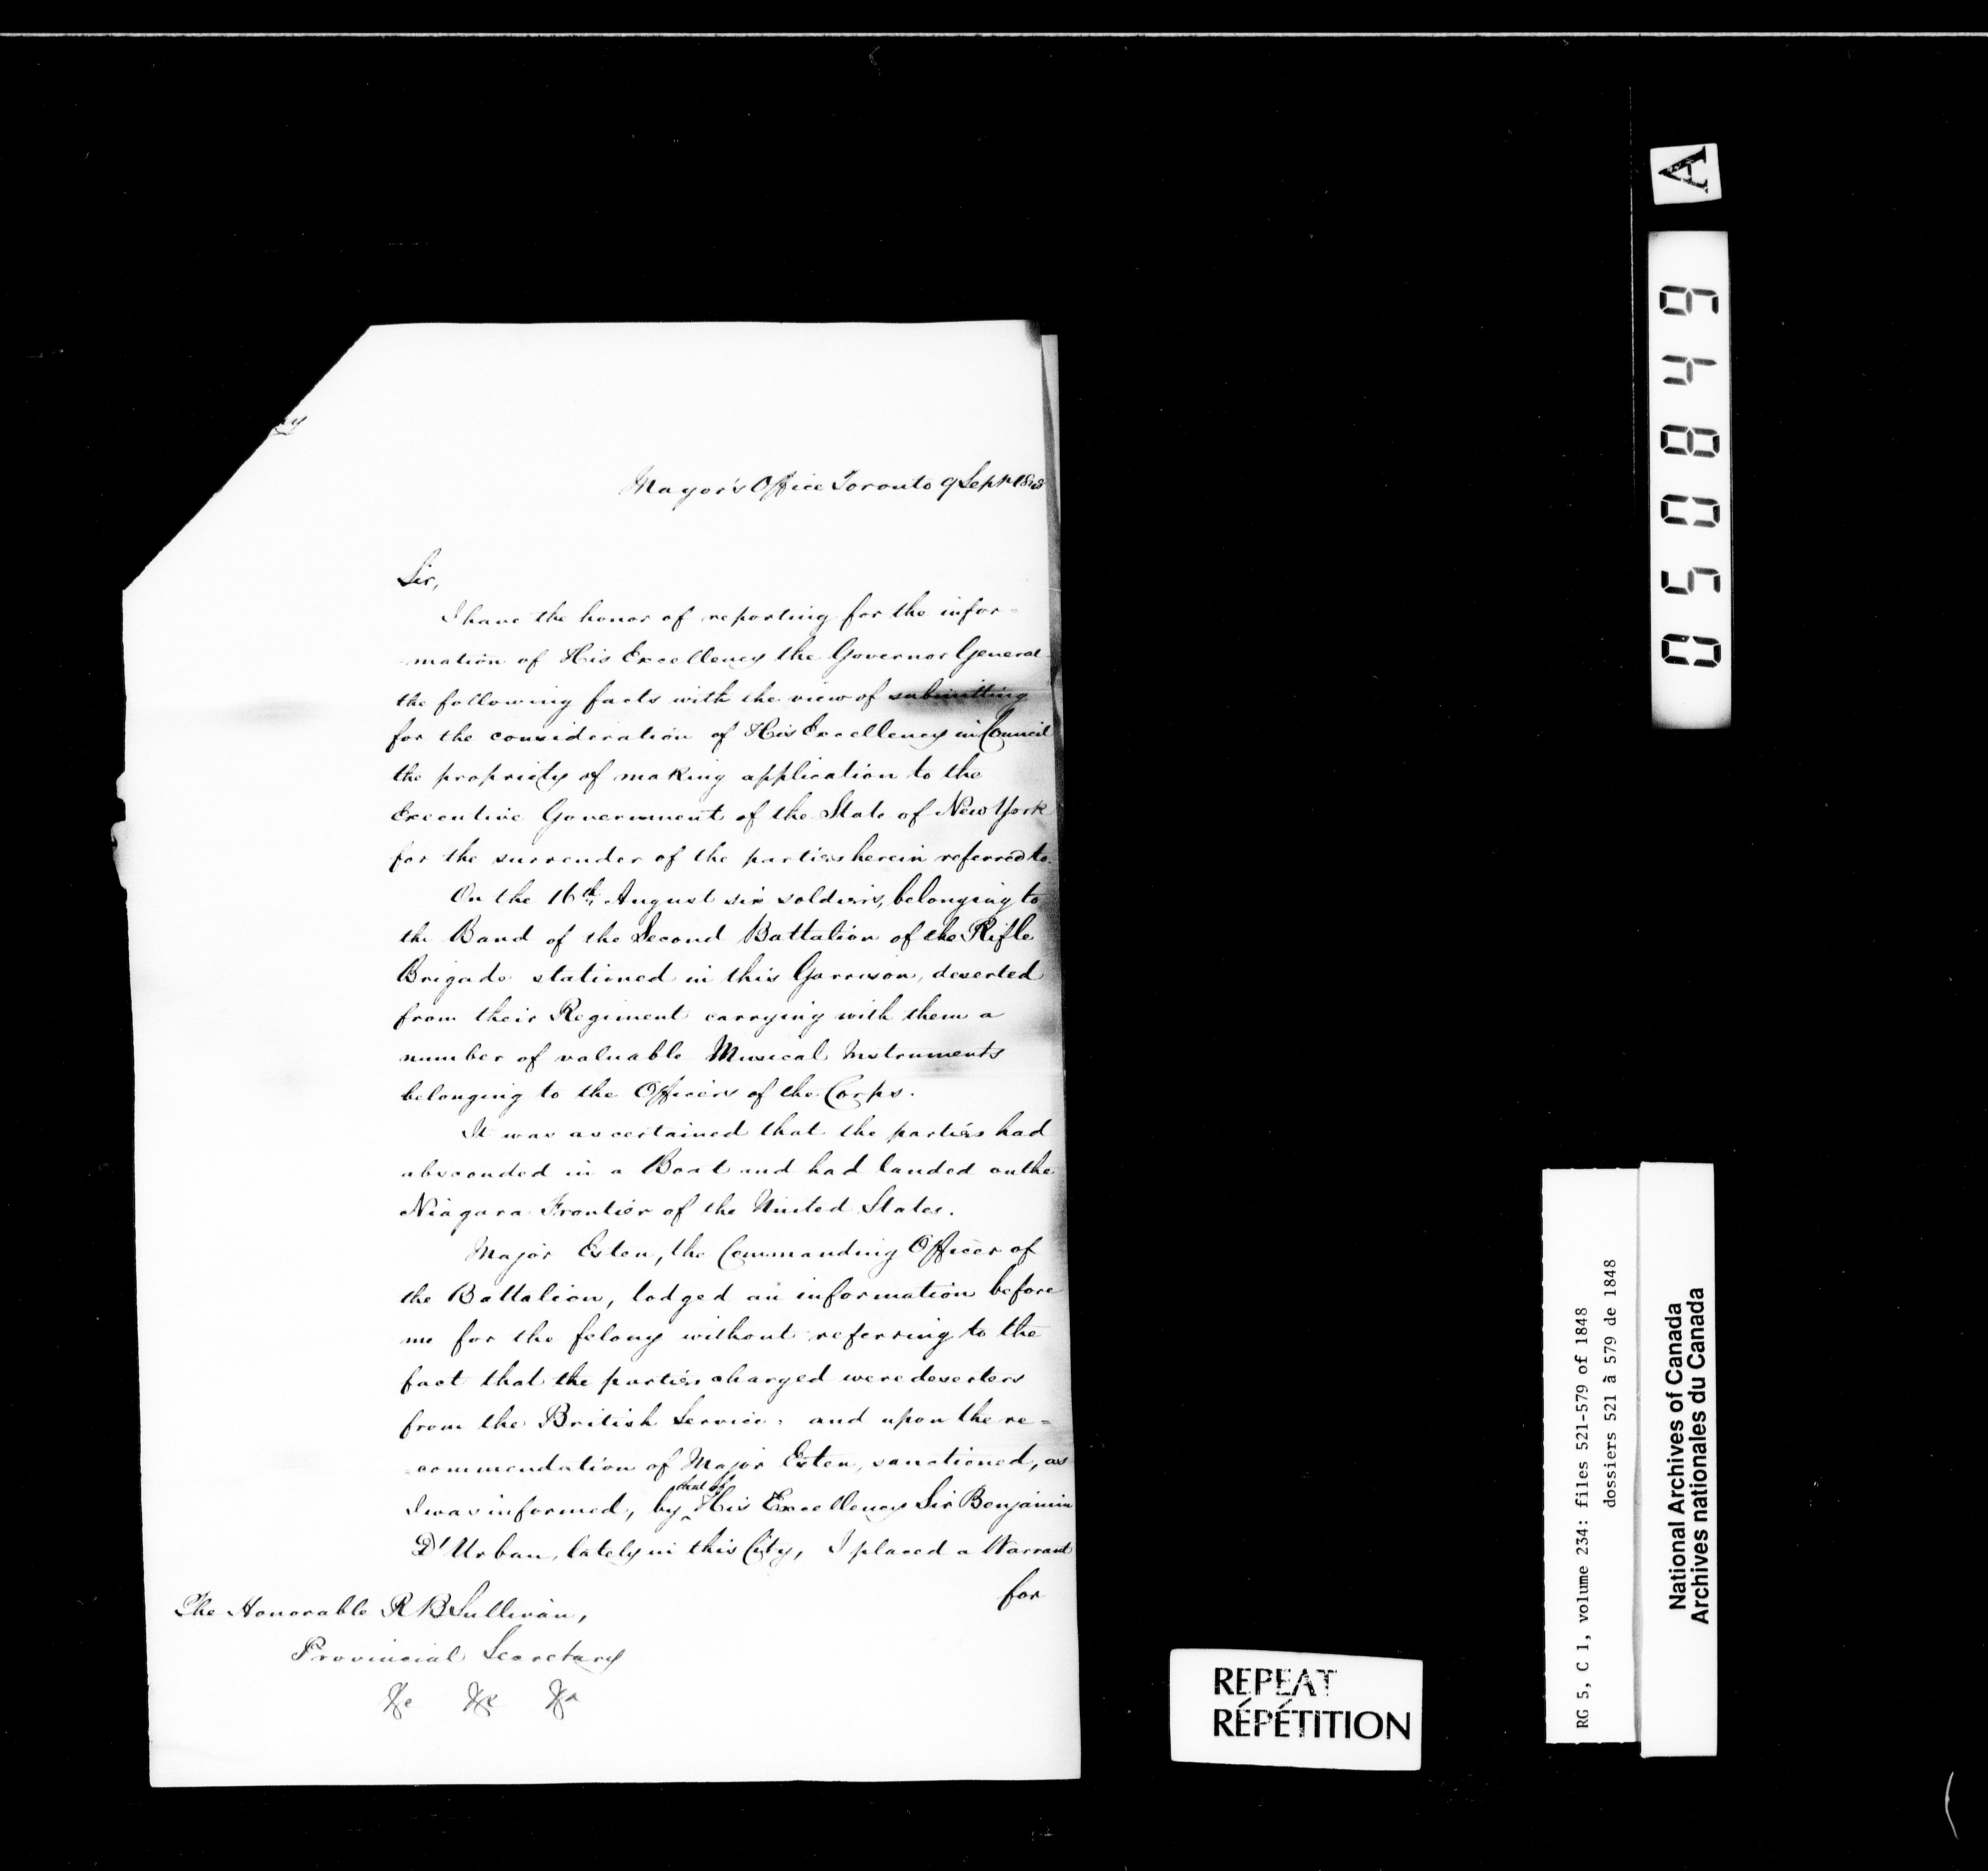 Mayor's Office Toronto 9 Septr 1848
Sir,
I have the honor of reporting for the infor=
=mation of His Excellency the Governor General
the following facts with the view of submitting
for the consideration of His Excellency in Council
the propriety of making application to the
Executive Government of the State of New York
for the surrender of the parties herein referred to.
On the 16th August six soldiers, belonging to
the Band of the Second Battalion of the Rifle
Brigade stationed in this Garrison, deserted
from their Regiment carrying with them a
number of valuable Musical Instruments
belonging to the Officers of the Corps.
It was ascertained that the parties had
absconded in a Boat and had landed on the
Niagara Frontier of the United States.
Major Esten, the Commanding Officer of
the Battalion, lodged an information before
me for the felony without referring to the
fact that the parties charged were deserters
from the British Service: and upon the re=
=commendation of Major Esten, sanctioned, as
I was informed, by that of His Excellency Sir Benjamin
D'Urban, lately in this City, I placed a Warrant
for
The Honorable R B Sullivan,
Provincial Secretary
&c &c &c
A
050849
RG 5, C 1, volume 234: files 521-579 of 1848
dossiers 521 à 579 de 1848
National Archives of Canada
Archives nationales du Canada
REPEAT
RÉPÉTITION